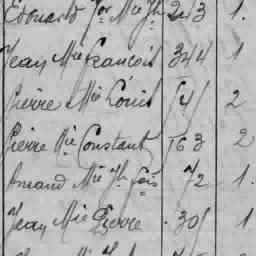 Edouard Jos Mie Jh 243 1.
Jean Mie François 344 1
Pierre Mie Louis 2
Pierre Mie Constant 163 2
Amand Mie Jh fois 72 1.
Jean Mie Pierre 301 1